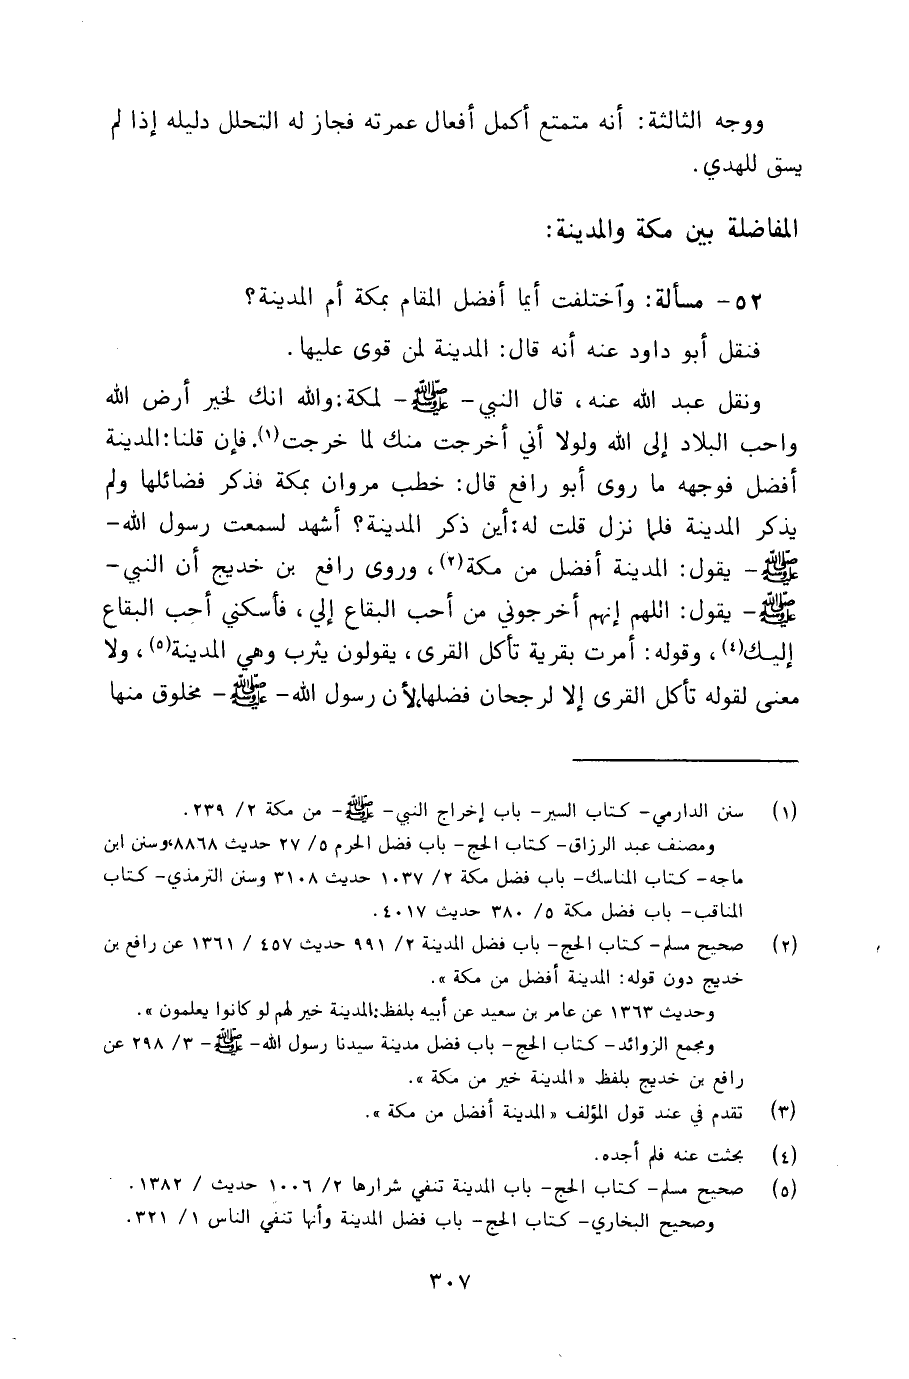 ووجه الثالثة: أنه متمتع أكمل أفعال عمرته فجاز له التحلل دليله إذا لم
يسق للهدي.
المفاضلة بين مكة والمدينة:
٥٢- مسألة: وٱختلفت أيما أفضل المقام بمكة أم المدينة؟
فنقل أبو داود عنه أنه قال: المدينة لمن قوى عليها.
ونقل عبد الله عنه، قال النبي- ﷺ- لمكة:والله انك لخير أرض الله
واحب البلاد إلى الله ولولا أني أخرجت منك لما خرجت(١). فإن قلنا:المدينة
أفضل فوجهه ما روى أبو رافع قال: خطب مروان بمكة فذكر فضائلها ولم
يذكر المدينة فلما نزل قلت له:أين ذكر المدينة؟ أشهد لسمعت رسول الله-
ﷺ- يقول: المدينة أفضل من مكة(٢)، وروى رافع بن خديج أن النبي-
ﷺ- يقول: اللهم إنهم أخرجوني من أحب البقاع إلي، فأسكني أحب البقاع
إليك(٤)، وقوله: أمرت بقرية تأكل القرى، يقولون يثرب وهي المدينة(٥)، ولا
معنى لقوله تأكل القرى إلا لرجحان فضلها،لأن رسول الله- ﷺ- مخلوق منها
(١) سنن الدارمي- كتاب السير- باب إخراج النبي- ﷺ- من مكة ٢/ ٢٣٩.
ومصنف عبد الرزاق- كتاب الحج- باب فضل الحرم ٥/ ٢٧ حديث ٨٨٦٨،وسنن ابن
ماجه- كتاب المناسك- باب فضل مكة ٢/ ١٠٣٧ حديث ٣١٠٨ وسنن الترمذي- كتاب
المناقب- باب فضل مكة ٥/ ٣٨٠ حديث ٤٠١٧.
(٢) صحيح مسلم- كتاب الحج- باب فضل المدينة ٢/ ٩٩١ حديث ٤٥٧ / ١٣٦١ عن رافع بن
خديج دون قوله: المدينة أفضل من مكة ».
وحديث ١٣٦٣ عن عامر بن سعيد عن أبيه بلفظ:المدينة خير لهم لو كانوا يعلمون ».
ومجمع الزوائد- كتاب الحج- باب فضل مدينة سيدنا رسول الله- ﷺ- ٣/ ٢٩٨ عن
رافع بن خديج بلفظ « المدينة خير من مكة ».
(٣) تقدم في عند قول المؤلف « المدينة أفضل من مكة ».
(٤) بحثت عنه فلم أجده.
(٥) صحيح مسلم- كتاب الحج- باب المدينة تنفي شرارها ٢/ ١٠٠٦ حديث / ١٣٨٢.
وصحيح البخاري- كتاب الحج- باب فضل المدينة وأنها تنفي الناس ١/ ٣٢١.
٣٠٧